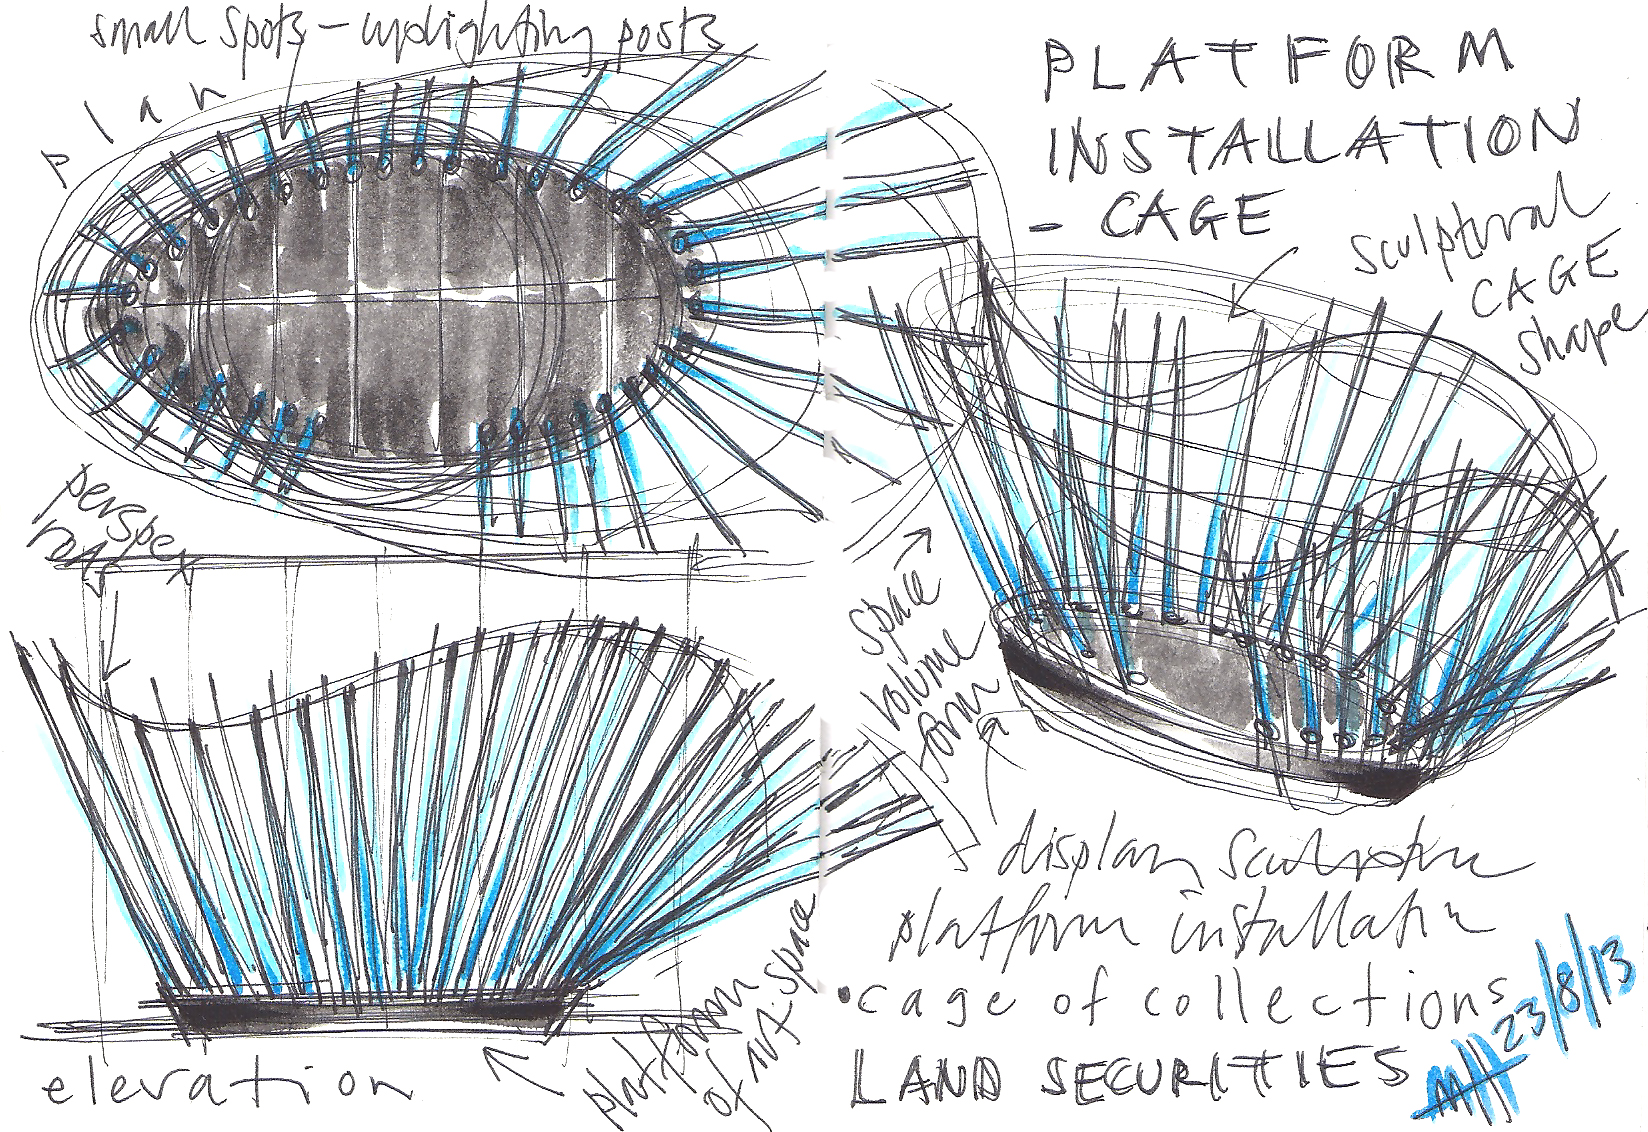 small spots – uplighting posts
plan
PLATFORM
INSTALLATION
- CAGE
sculptural
CAGE
shape
perspex
rods
space
volume
form
display sculpture
platform installation
• cage of collections
LAND SECURITIES
23/8/13
elevation
platform
of art-space